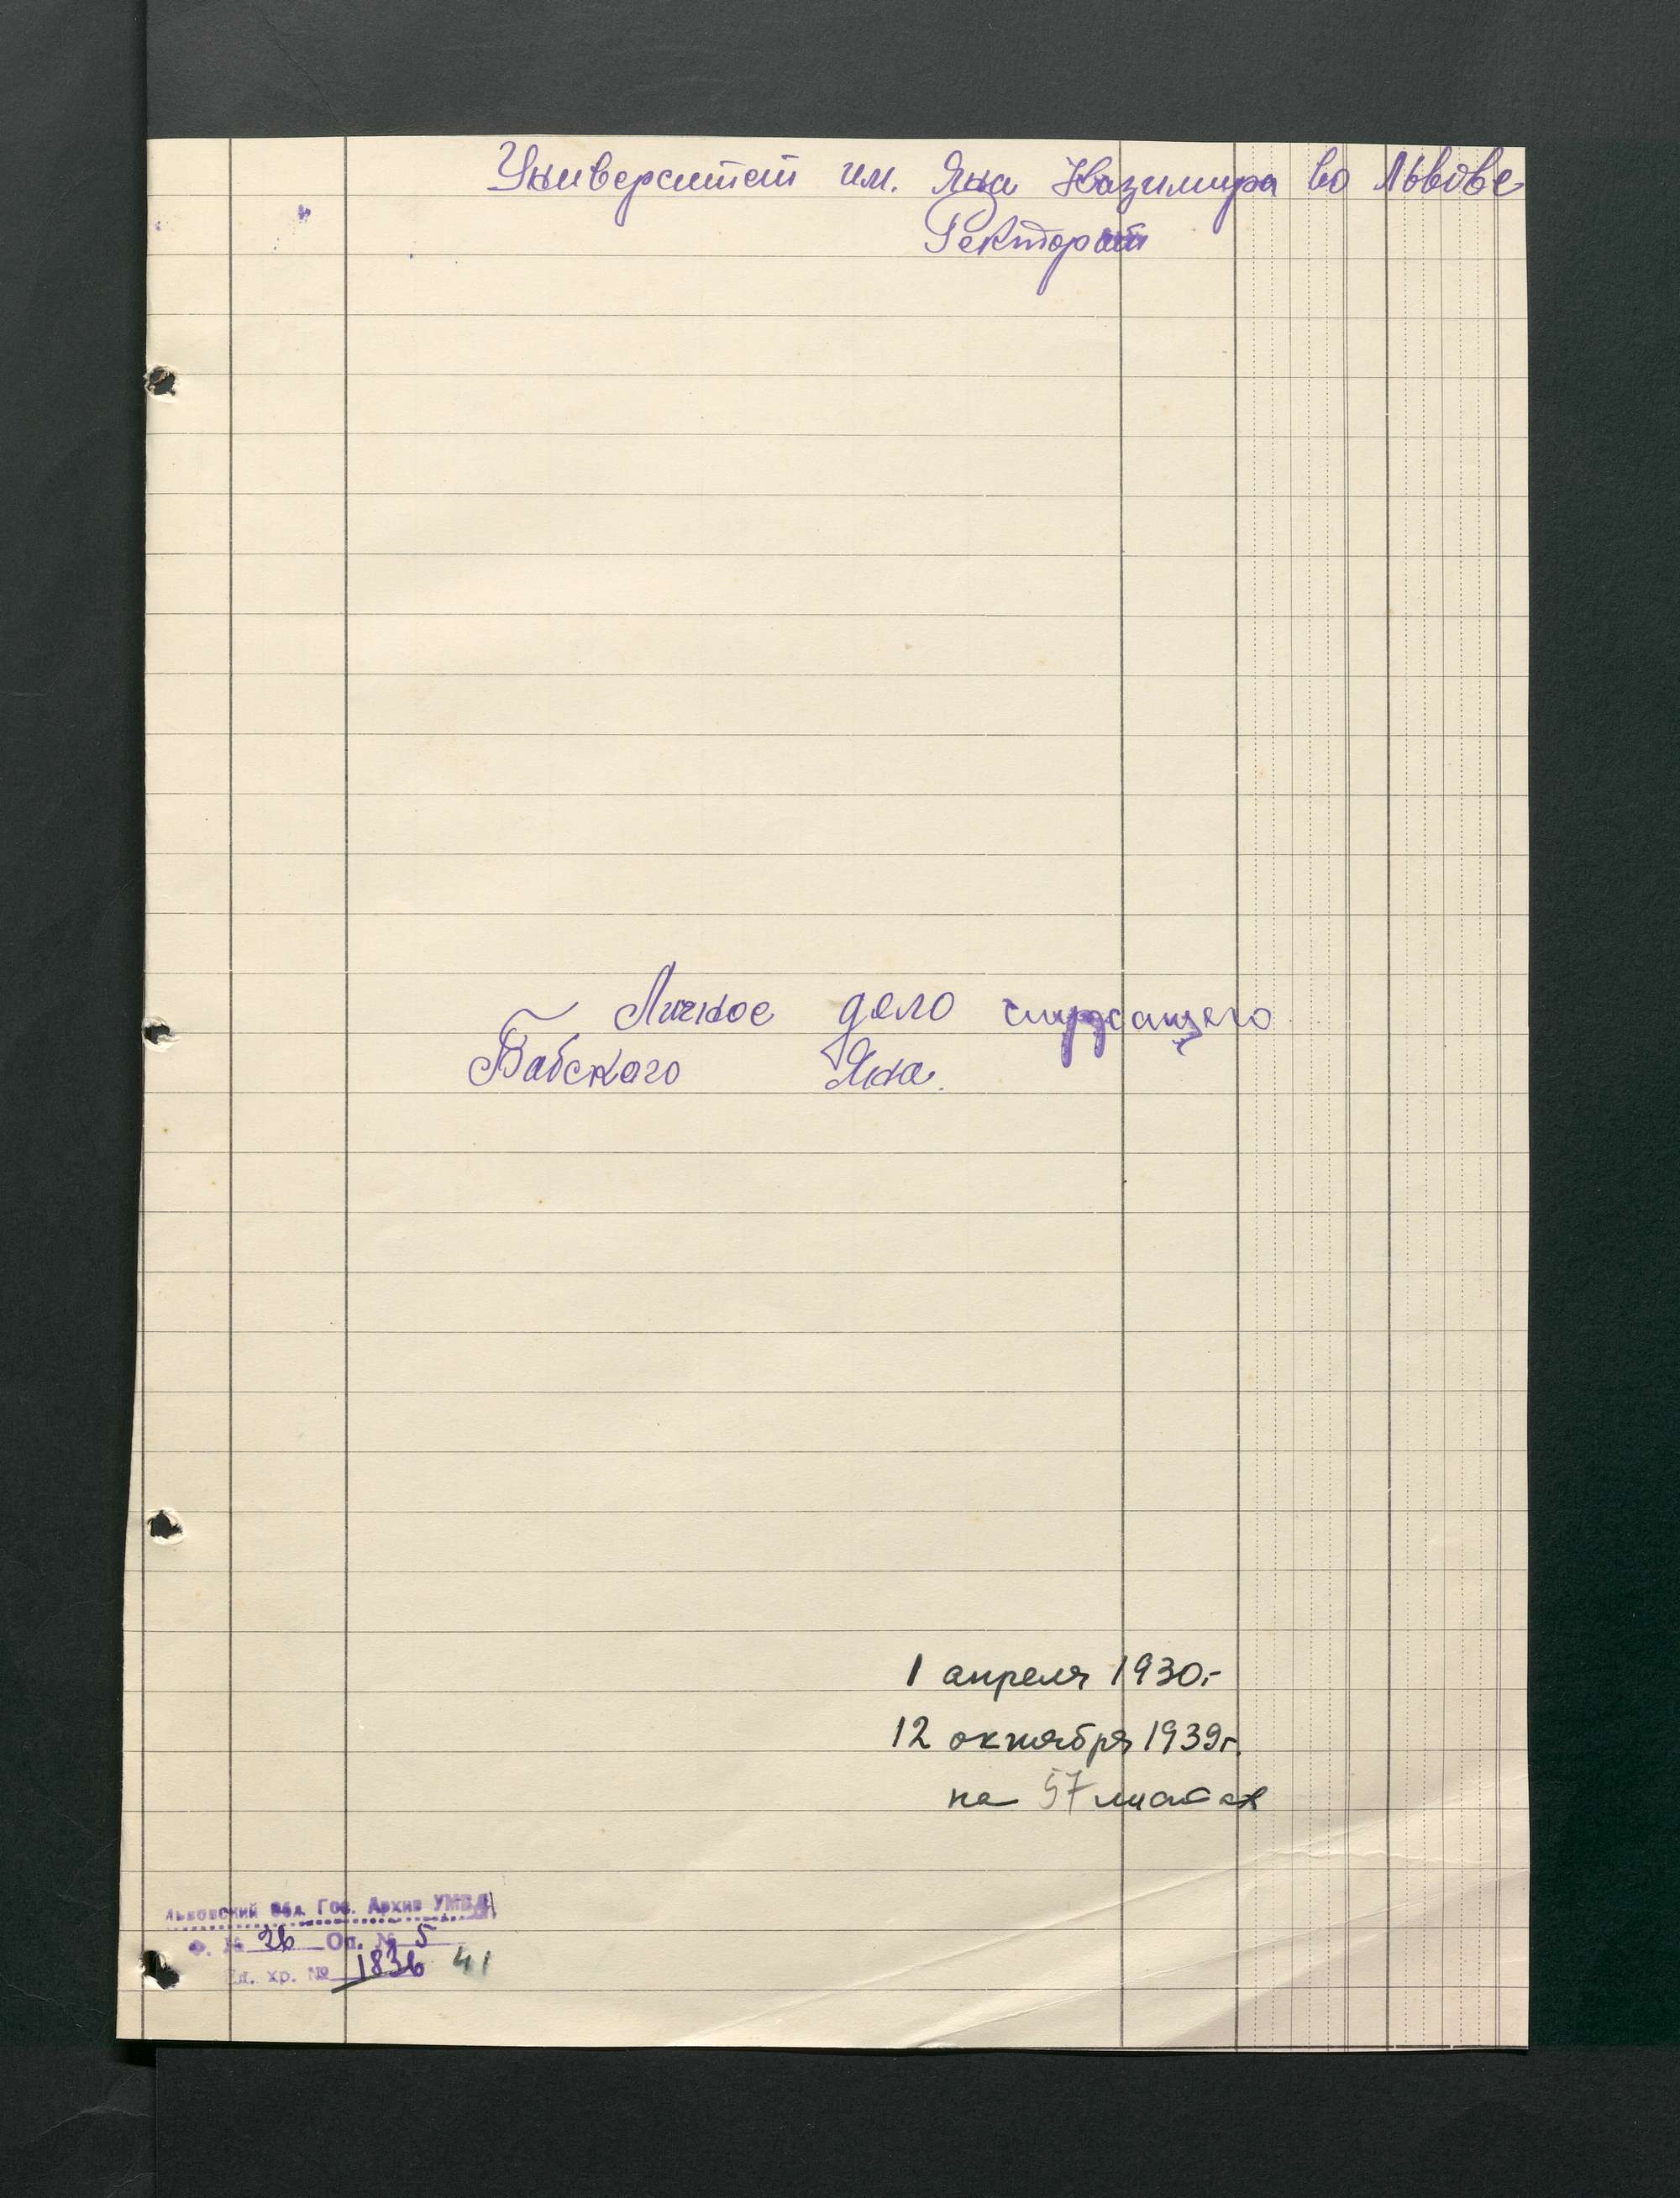 Университет им. Яна Казимира во Львове
Ректорат
Личное дело служащего
Бабского Яна.
1 апреля 1930.-
12 октября 1939г.
на 57 листах
Львовский Обл. Гос. Архив УМВД
Ф. № 26 Оп. № 5
Ед. хр. № 1836 41